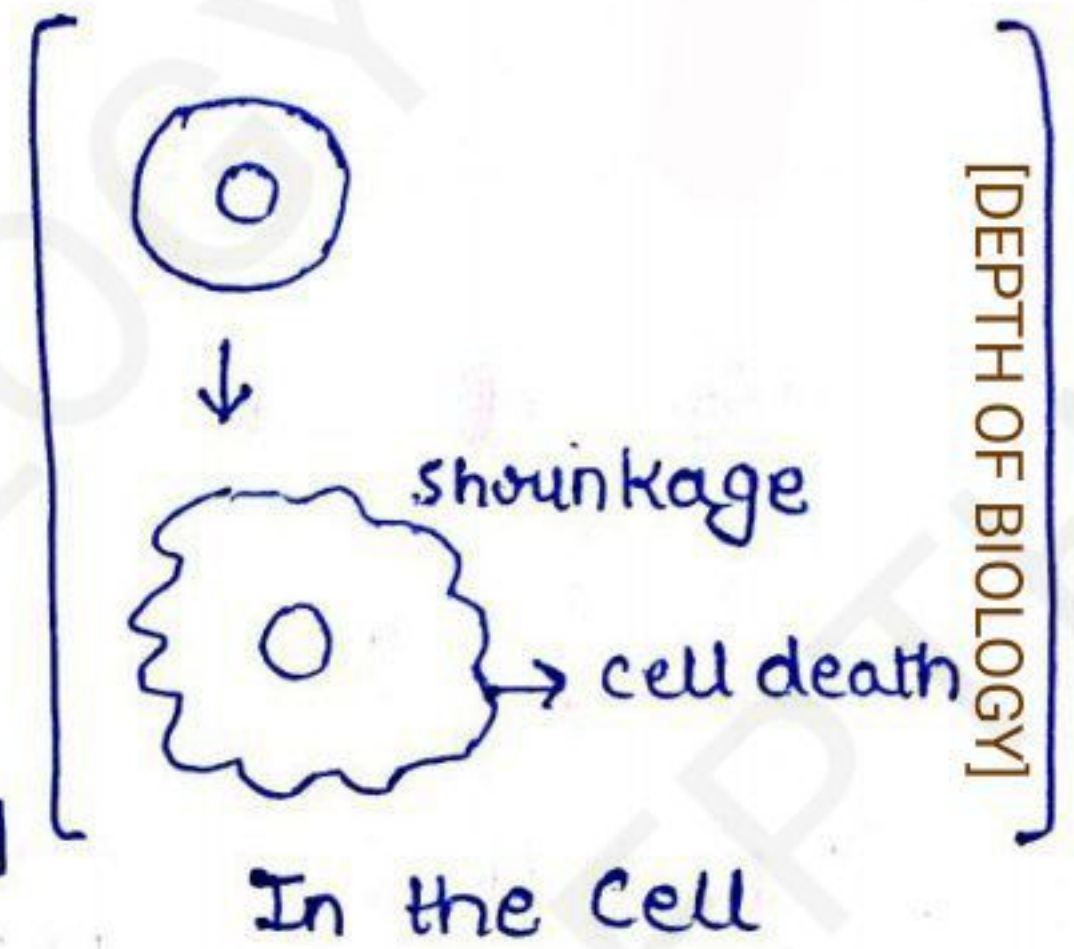 shrinkage
cell death
[DEPTH OF BIOLOGY]
In the Cell